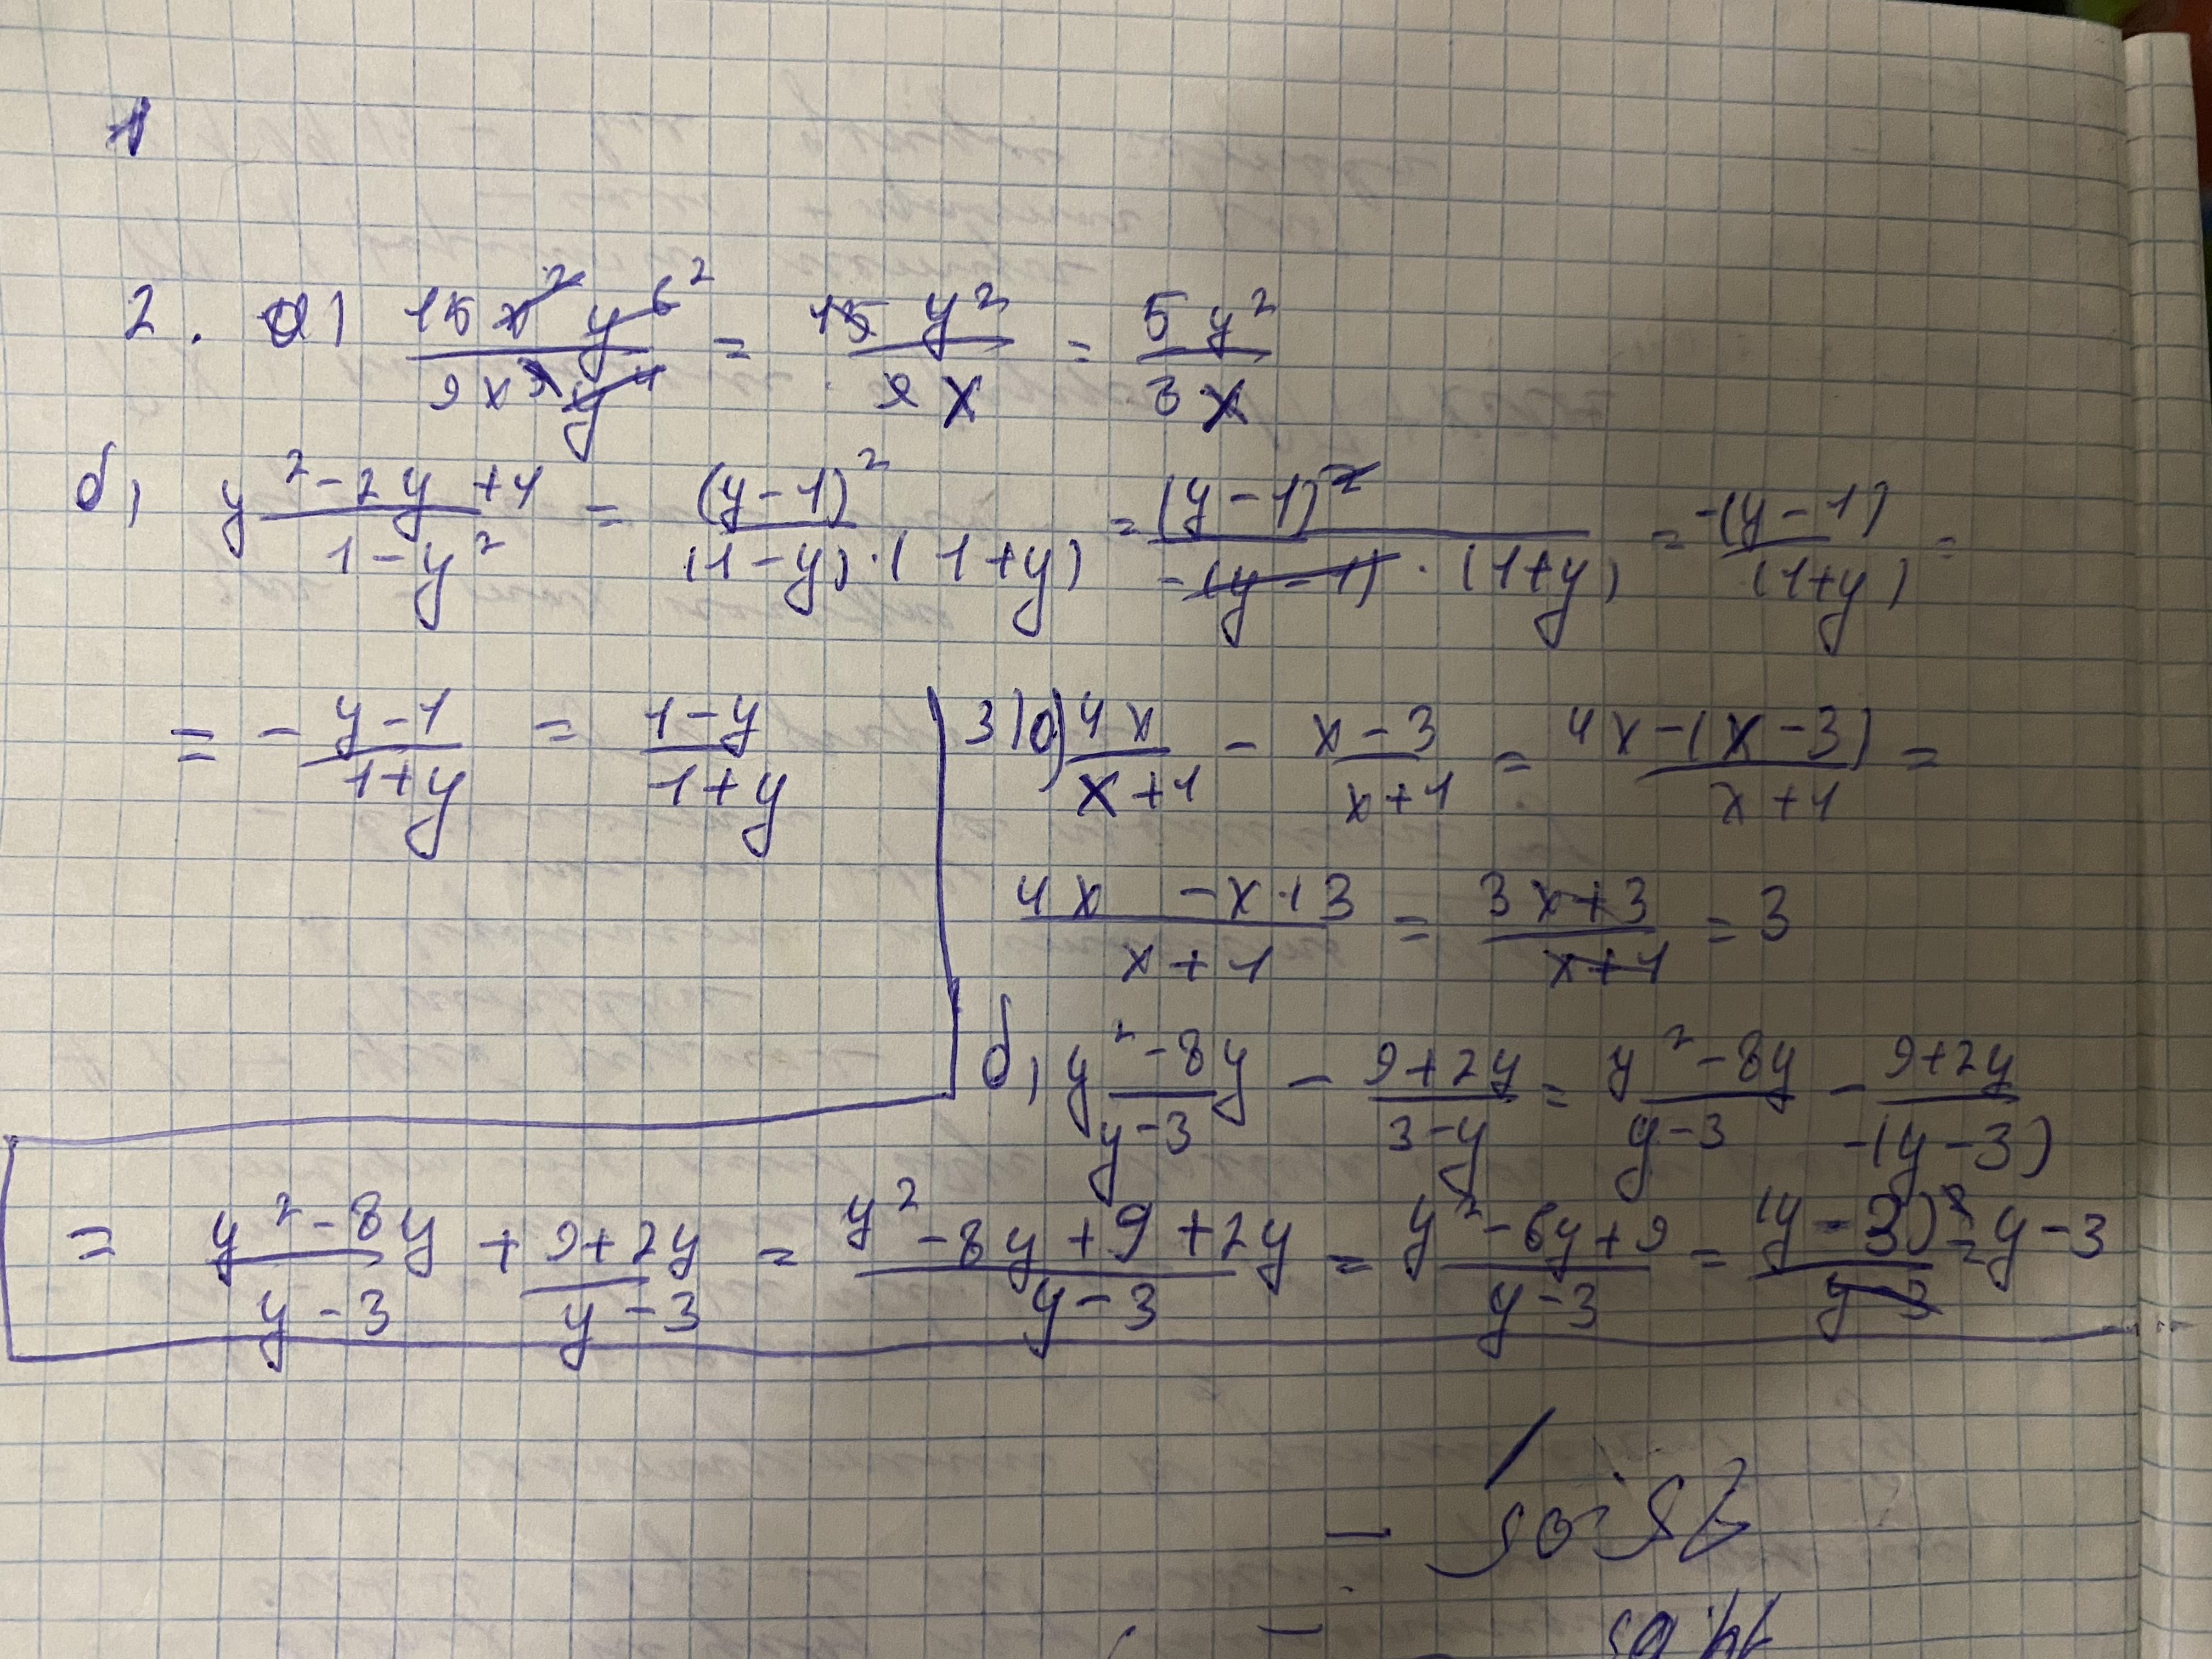 1
2. а) 15x²y⁶ ² / 9x³y⁴ = 15y² / 9x = 5y² / 3x
б) y²-2y+1 / 1-y² = (y-1)² / (1-y)·(1+y) = (y-1)² / -(y-1)·(1+y) = -(y-1) / (1+y) =
= - y-1 / 1+y = 1-y / 1+y
3) а) 4x / x+1 - x-3 / x+1 = 4x-(x-3) / x+1 =
4x -x+3 / x+1 = 3x+3 / x+1 = 3
б) y²-8y / y-3 - 9+2y / 3-y = y²-8y / y-3 - 9+2y / -(y-3)
= y²-8y / y-3 + 9+2y / y-3 = y²-8y+9+2y / y-3 = y²-6y+9 / y-3 = (y-3)² / y-3 = y-3